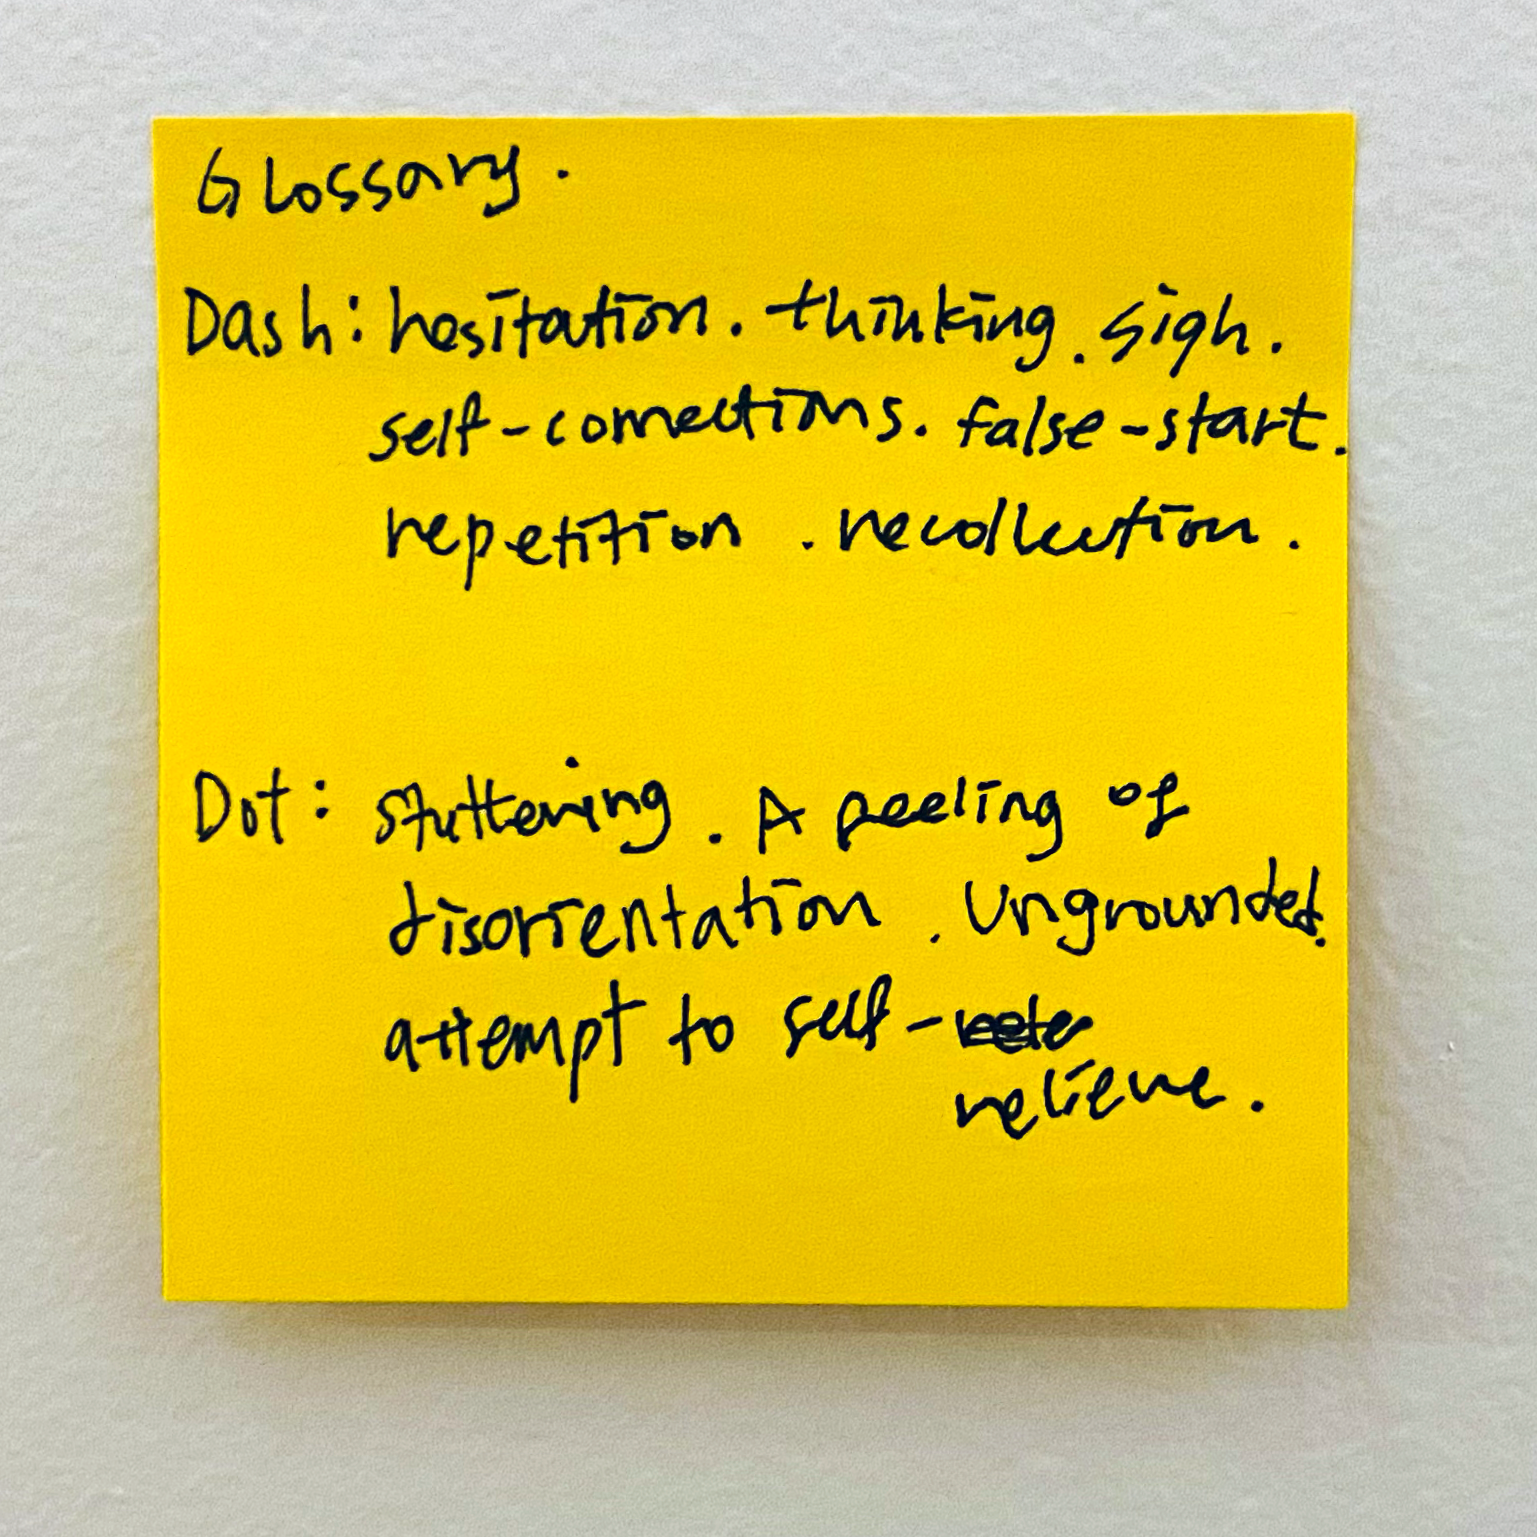 Glossary.
Dash: hesitation. thinking. sigh.
self-corrections. false-start.
repetition. recollection.
Dot: stuttering. A feeling of
disorientation. Ungrounded.
attempt to self-
relieve.